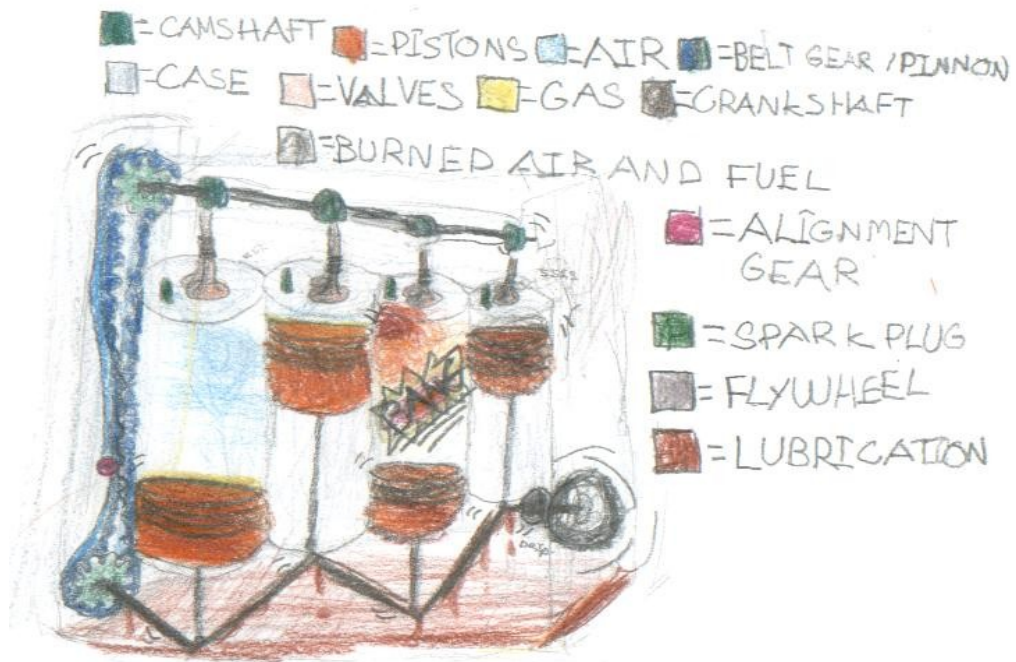 =CAMSHAFT =PISTONS =AIR =BELT GEAR /PINNON
=CASE =VALVES =GAS =CRANKSHAFT
=BURNED AIR AND FUEL
=ALIGNMENT
GEAR
=SPARK PLUG
=FLYWHEEL
=LUBRICATION
BANG